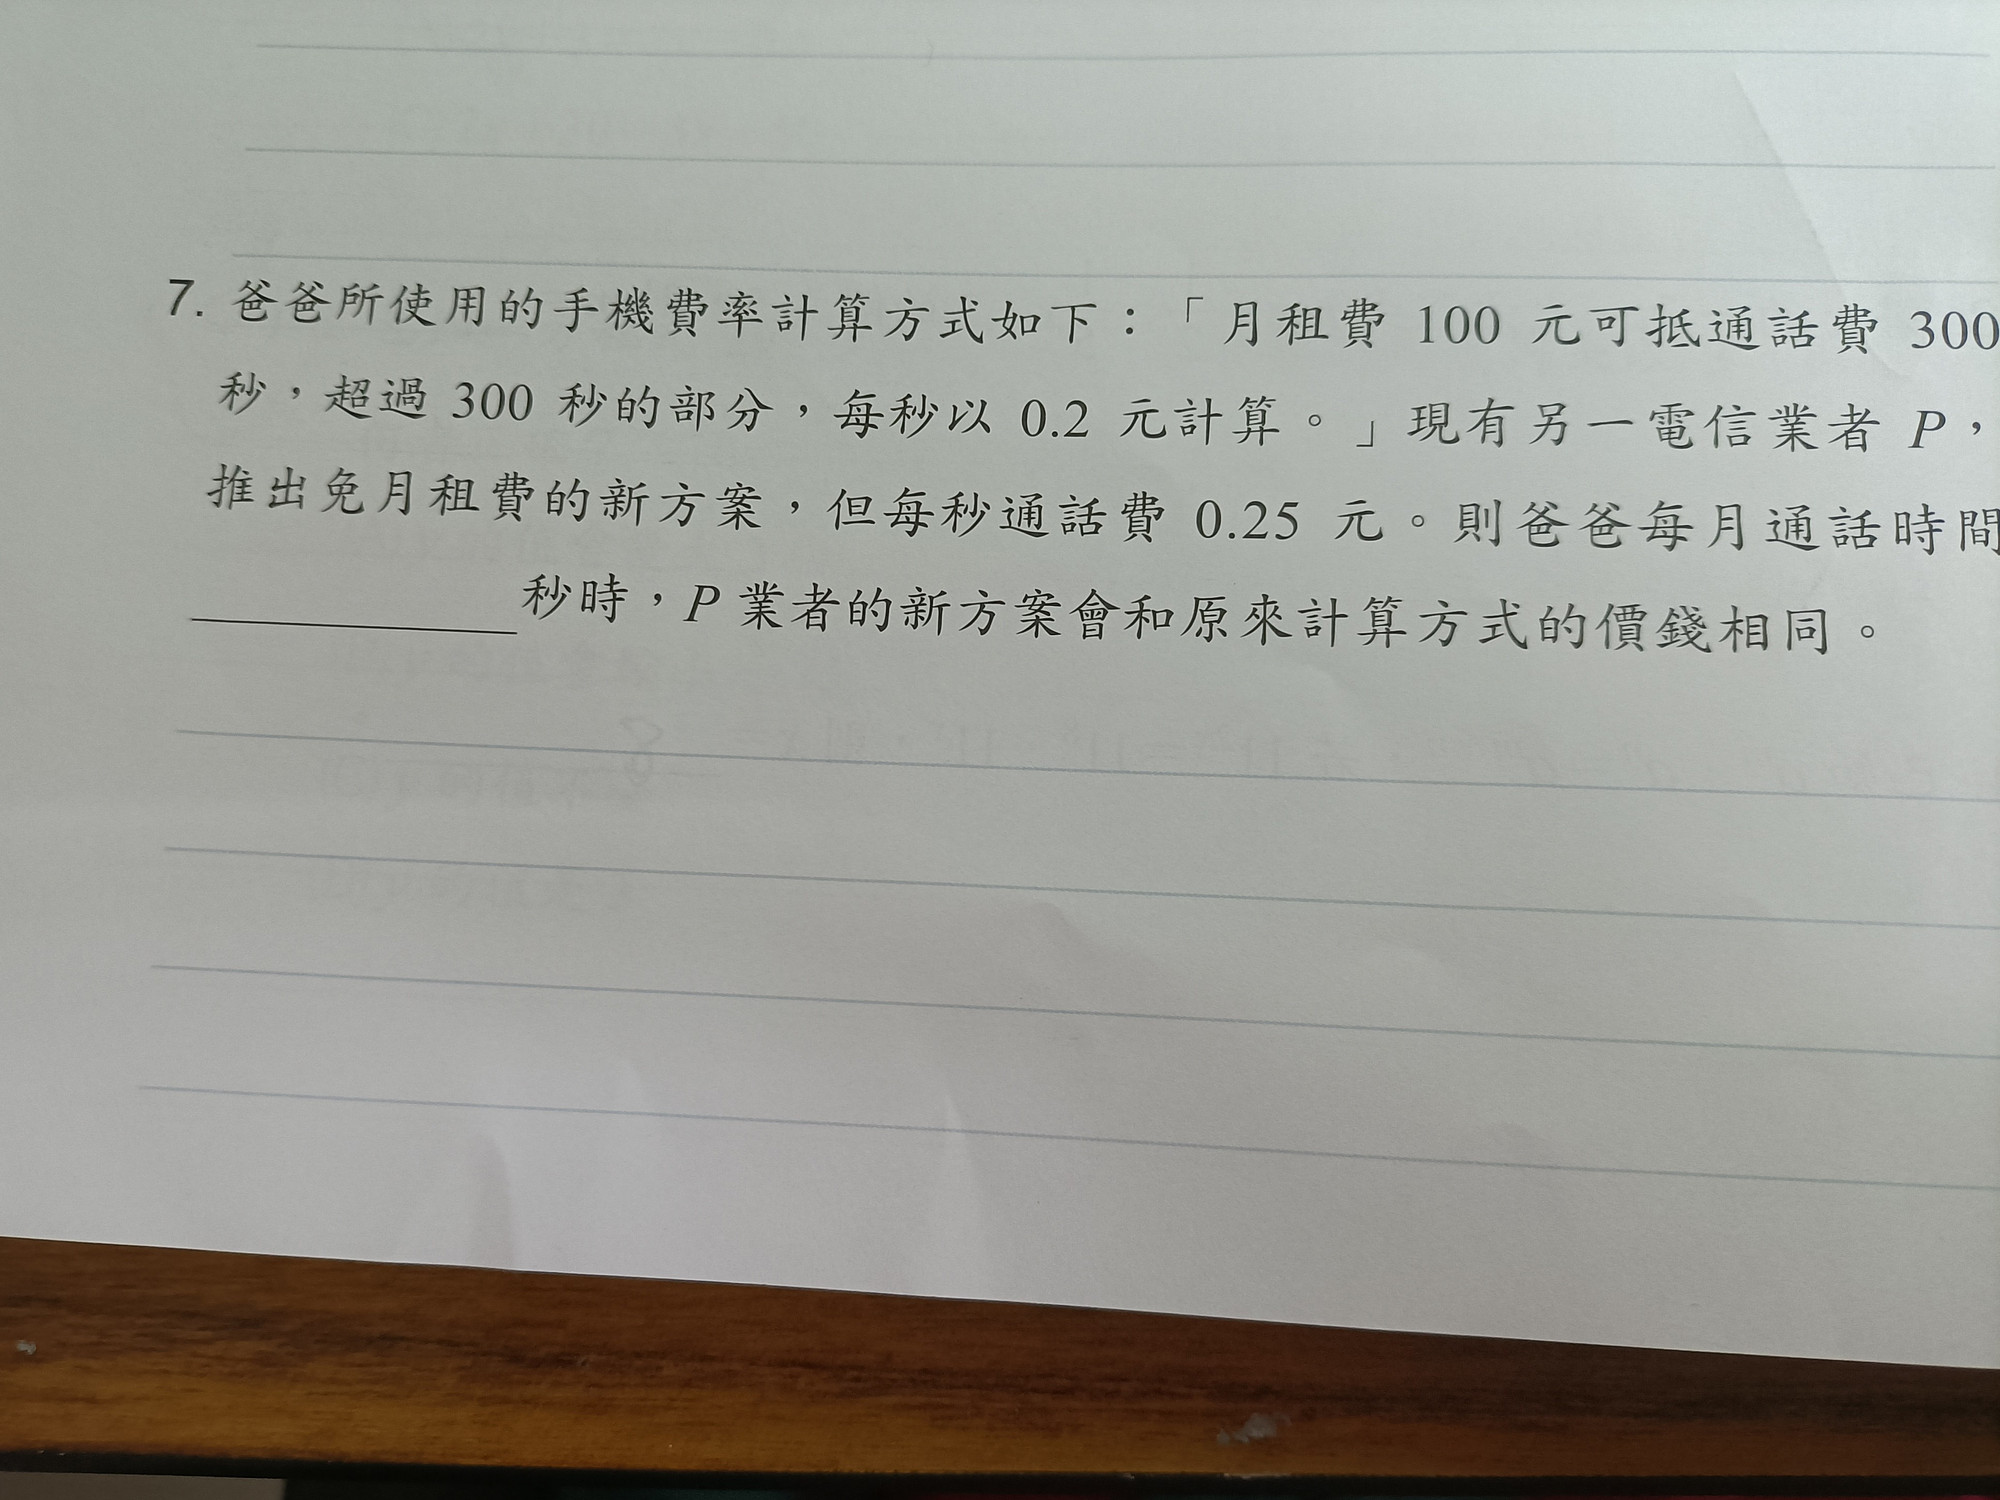 7. 爸爸所使用的手機費率計算方式如下：「月租費 100 元可抵通話費 300
秒，超過 300 秒的部分，每秒以 0.2 元計算。」現有另一電信業者 P，
推出免月租費的新方案，但每秒通話費 0.25 元。則爸爸每月通話時間
秒時，P 業者的新方案會和原來計算方式的價錢相同。